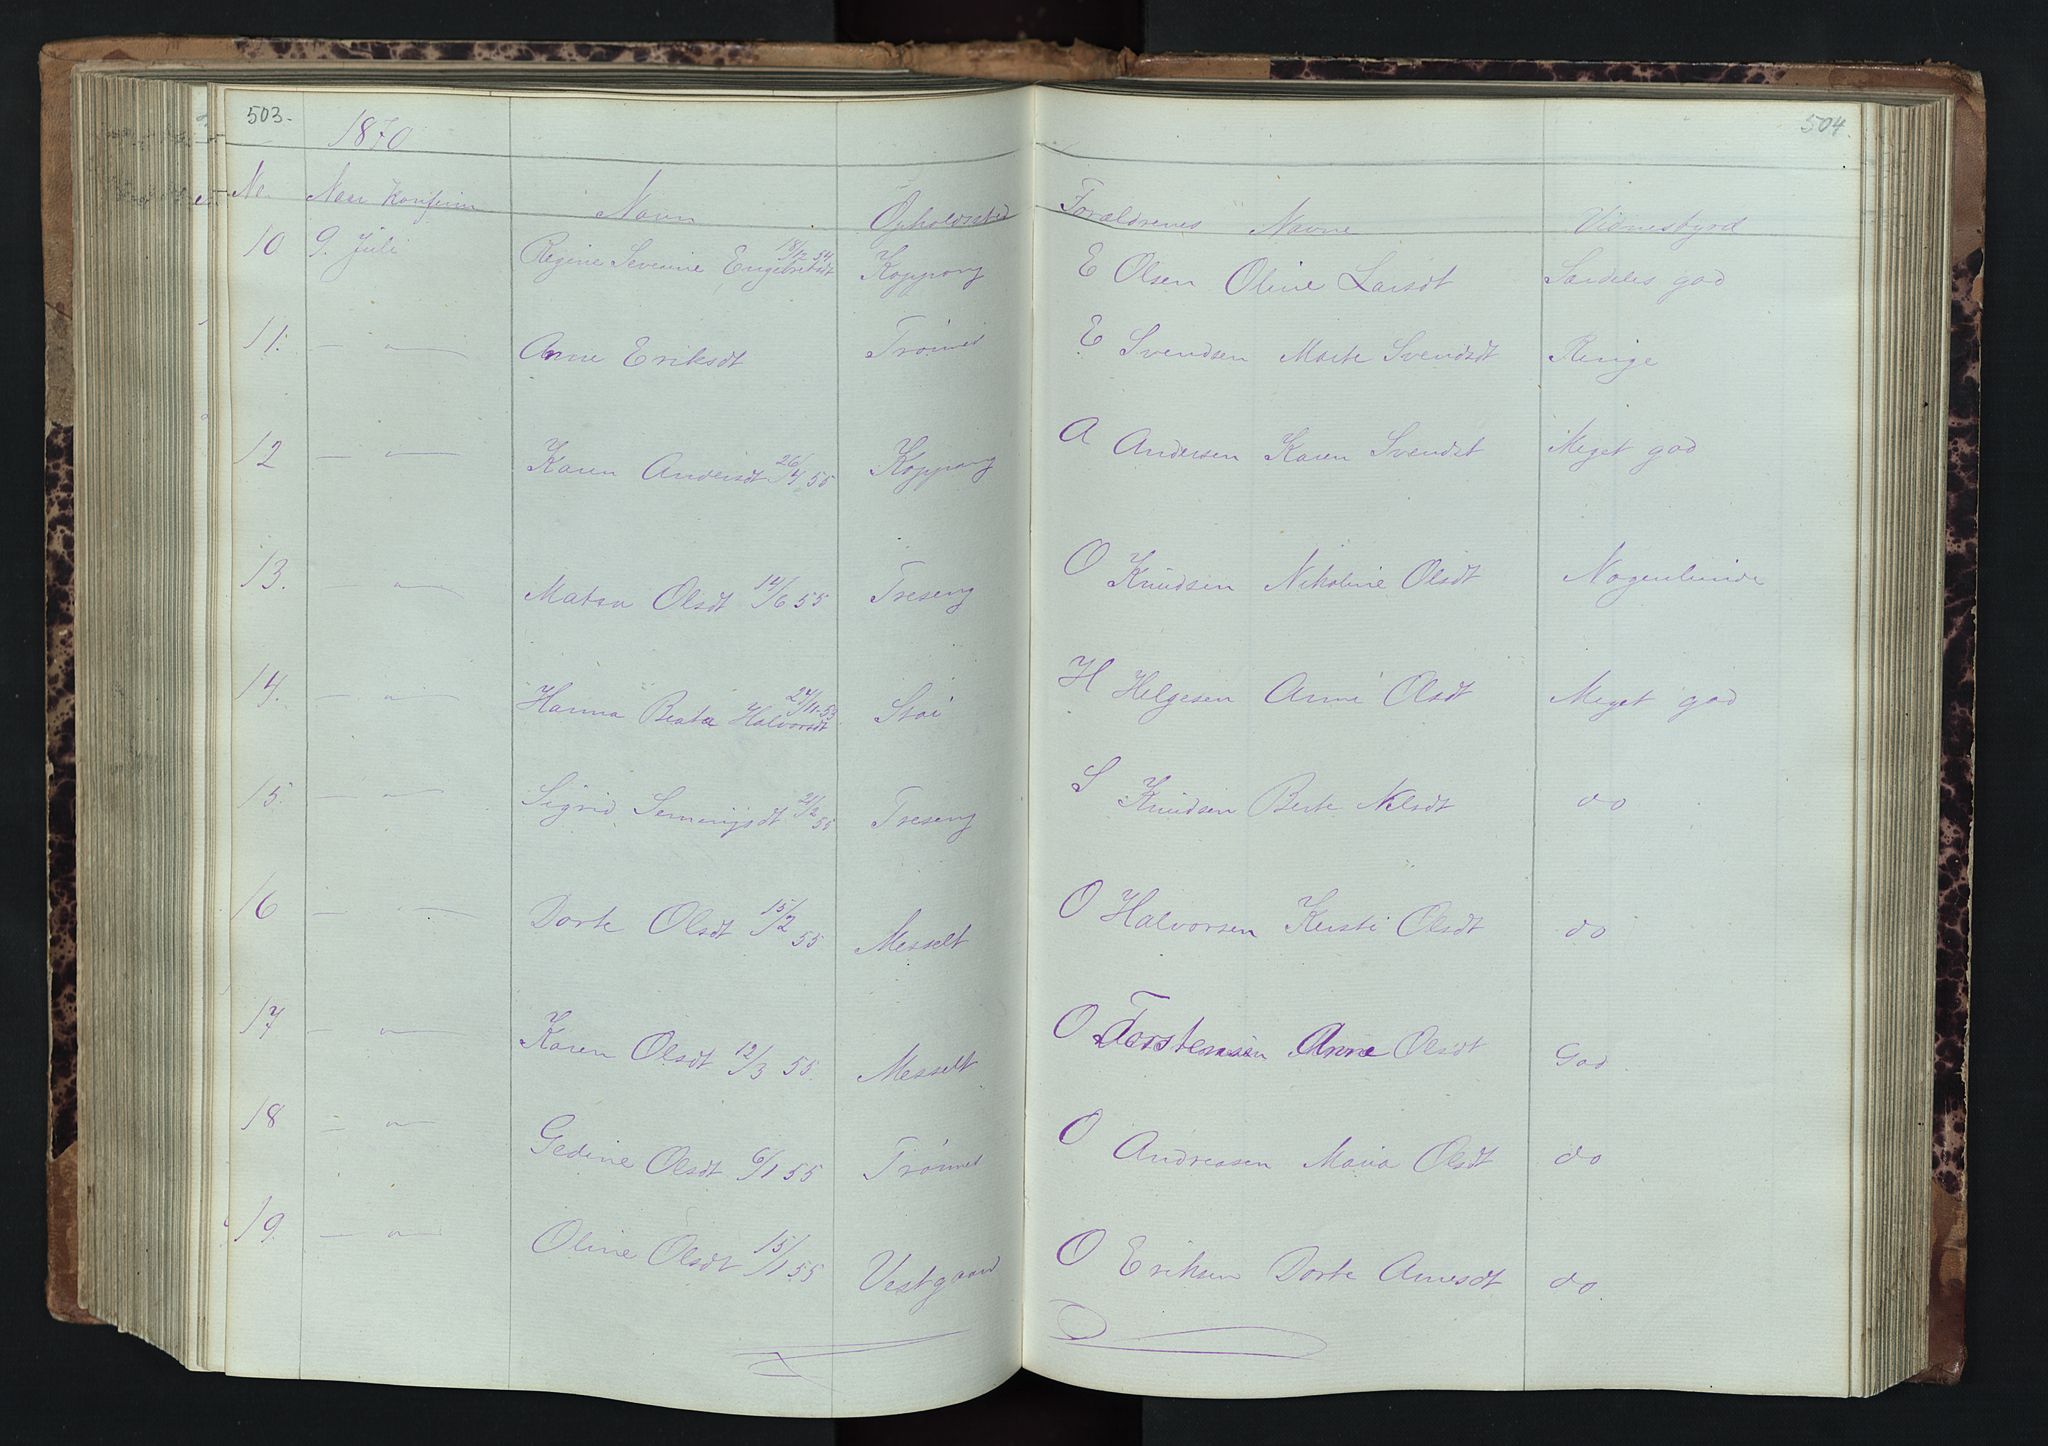 503.
504.
1870
No. Naar Konfirm Navn Opholdssted Forældrenes Navne Vidnesbyrd
10 9. Juli Regine Severine Engebretsdt 18/12 54 Koppang E Olsen Oline Larsdt Særdeles god
11. — " — Anne Eriksdt Trønnes E Svendsen Marte Svendsdt Ringe
12 — " — Karen Andersdt 26/4 55 Koppang A Andersen Karen Svendst Meget god
13. — " — Matea Olsdt 14/6 55 Treseng O Knudsen Nikoline Olsdt Nogenlunde
14. — " — Hanna Beata Halvorsdt 24/11 53 Stai H Helgesen Anne Olsdt Meget god
15. — " — Sigrid Semingsdt 21/2 55 Treseng S Knudsen Berte Nelsdt do
16 — " — Dorte Olsdt 15/2 55 Messelt O Halvorsen Kersti Olsdt do
17 — " — Karen Olsdt 12/3 55. Messelt O Torstensen Anne Olsdt God
18 — " — Gedine Olsdt 6/1 55 Trønnes O Andreasen Maria Olsdt do
19. — " — Oline Olsdt 15/1 55 Vestgaard O Eriksen Dorte Arnesdt do